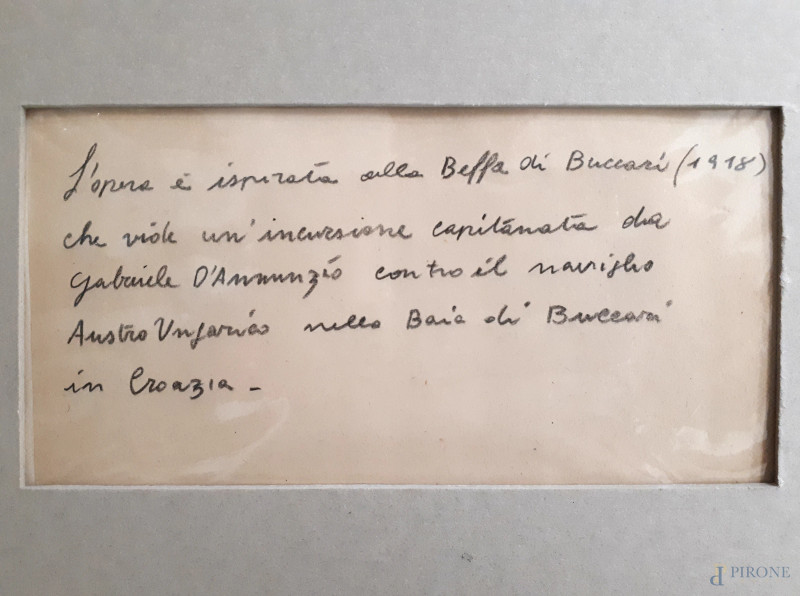 L'opera è ispirata alla Beffa di Buccari (1918)
che vide un'incursione capitanata da
Gabriele D'Annunzio contro il naviglio
Austro Ungarico nella Baia di Buccari
in Croazia -
PIRONE